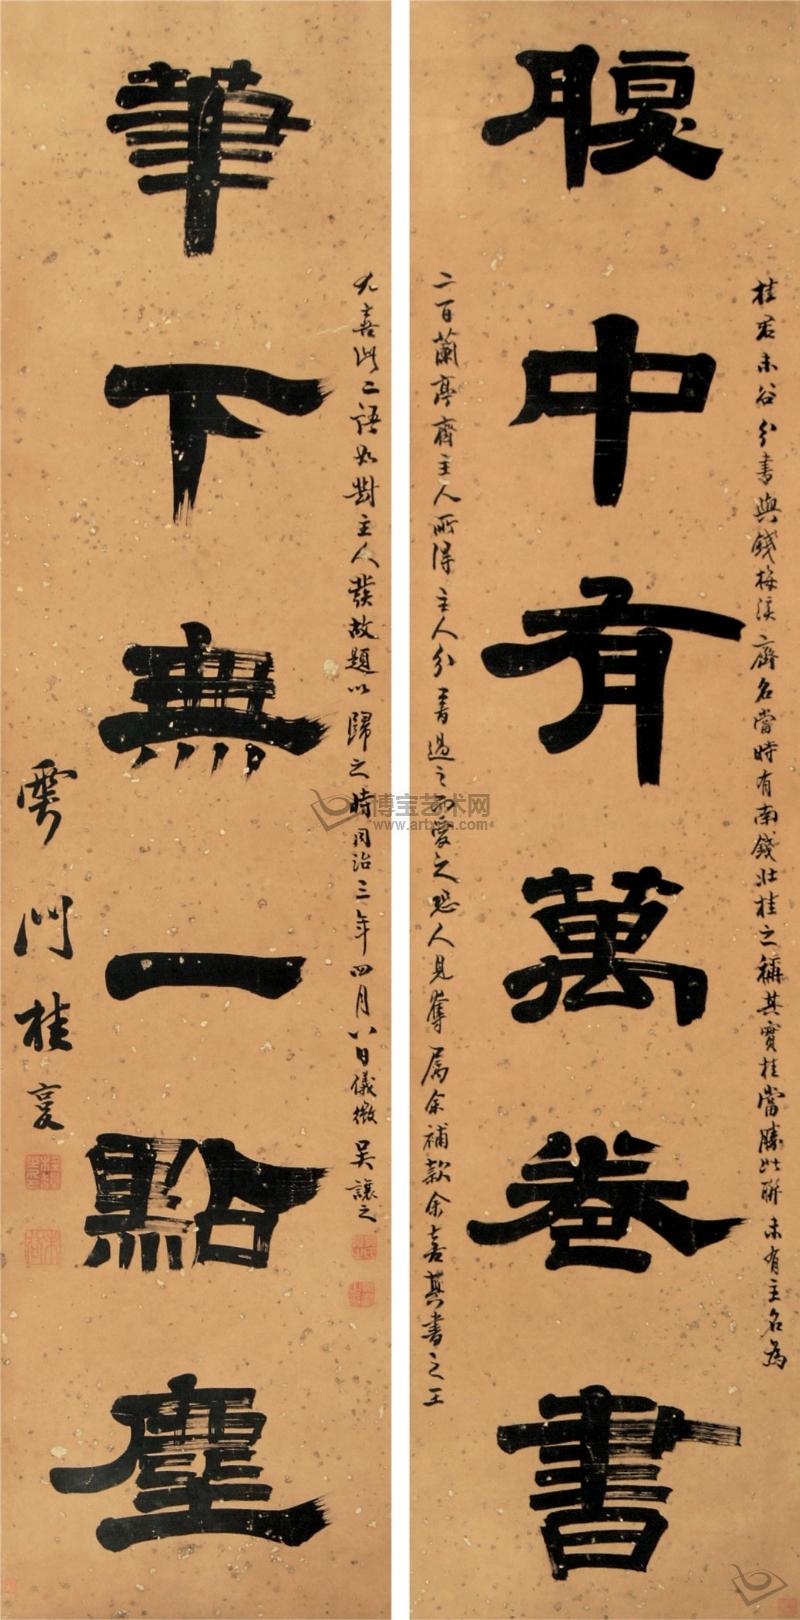 腹中有萬卷書
桂君未谷分書與錢梅溪齊名當時有南錢北桂之稱其實桂當勝此聯未有主名為
二百蘭亭齋主人所得主人分書過之而愛之恐人見奪屬余補款余喜其書之工
筆下無一點塵
尤喜此二語如對主人發故題以歸之時同治三年四月八日儀徵吳讓之
雩門桂馥
博宝艺术网
www.artxun.com